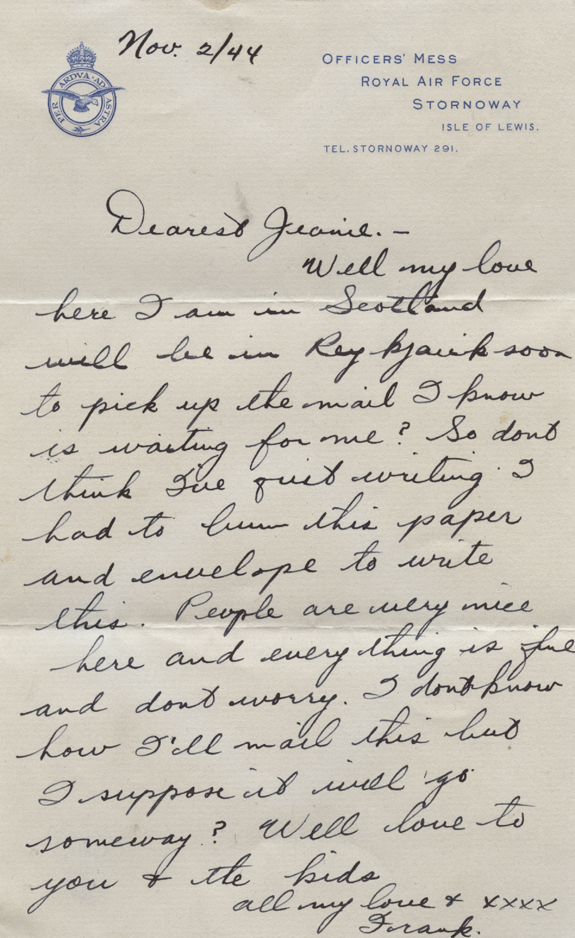 Nov. 2/44
PER ARDVA AD ASTRA
OFFICERS' MESS
ROYAL AIR FORCE
STORNOWAY
ISLE OF LEWIS.
TEL. STORNOWAY 291.
Dearest Jeanie. –
Well my love
here I am in Scotland
will be in Reykjavik soon
to pick up the mail I know
is waiting for me? So dont
think I've quit writing. I
had to bum this paper
and envelope to write
this. People are very nice
here and everything is fine
and dont worry. I dont know
how I'll mail this but
I suppose it will go
someway? Well love to
you & the kids
all my love & xxxx
Frank.